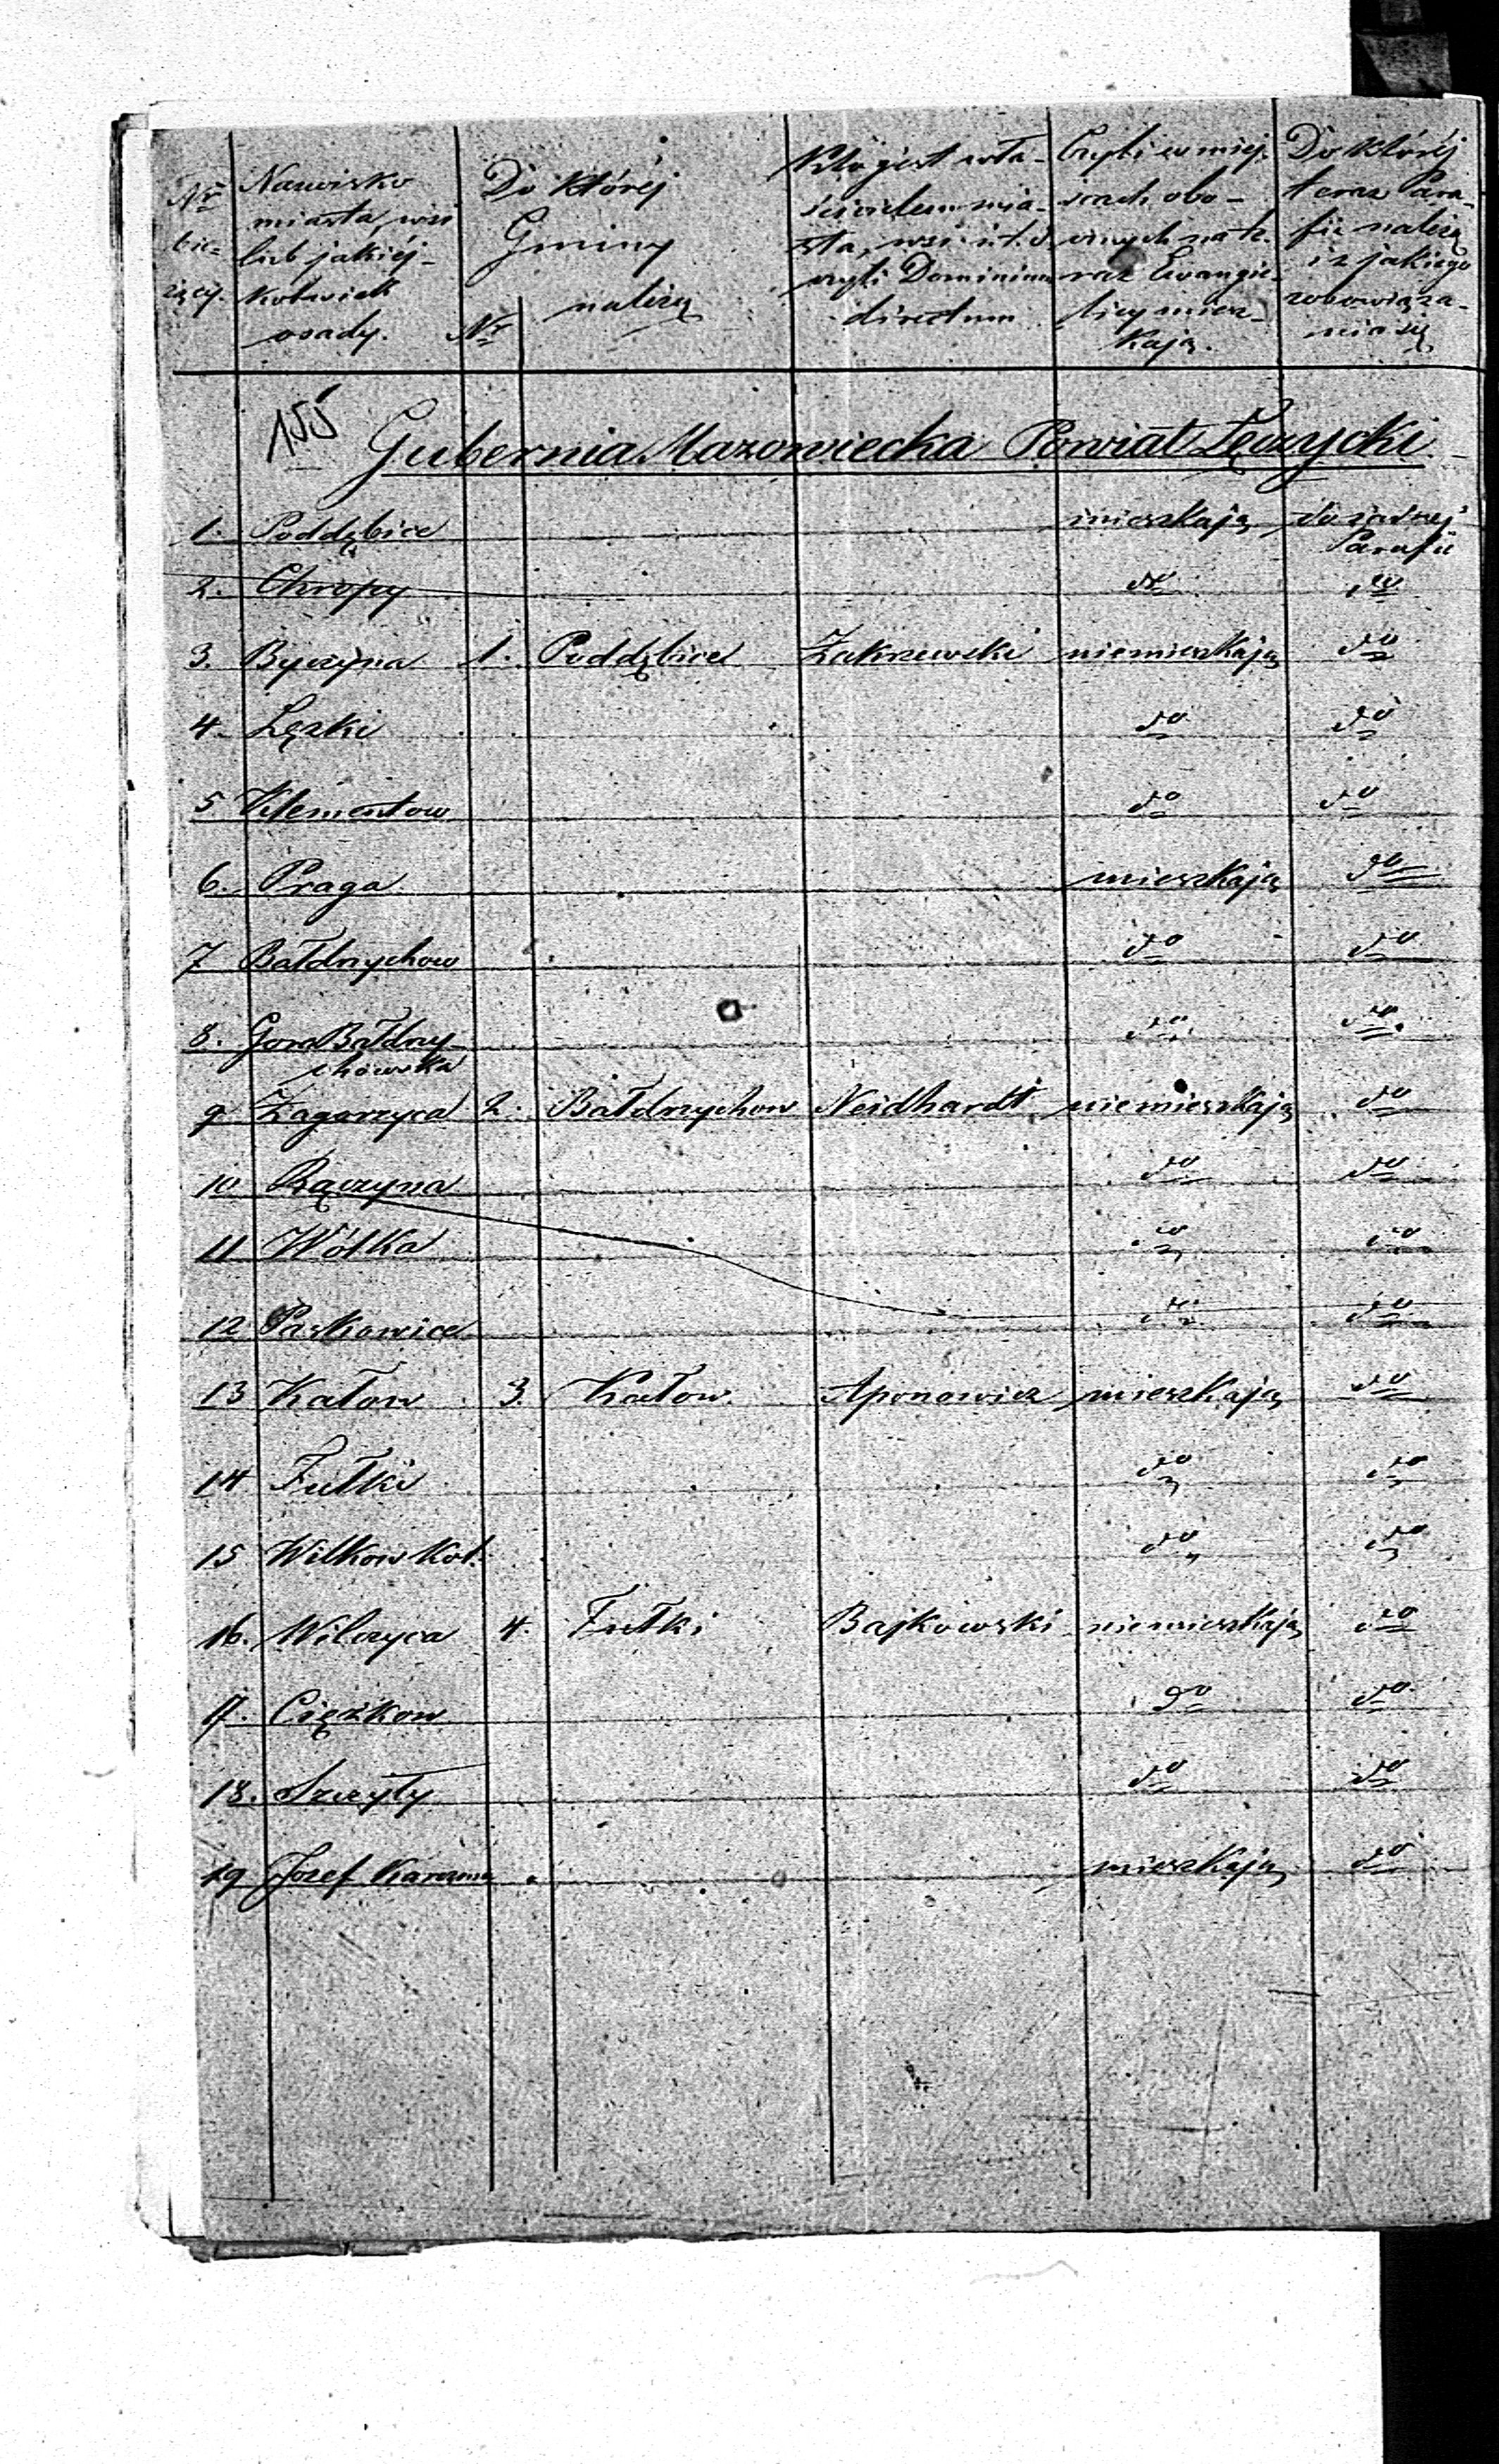 Nr bie- żący.
Nazwisko miasta, wsi lub jakiéj- kolwiek osady.
Do któréj Gminy należą
Nr
Kto jest wła- ścicielem mia- sta, wsi i t. d. czyli Dominium directum
Czyli w miej- scach obo- cznych te- raz Ewangie- licy miesz- kają.
Do któréj teraz Para- fii należą i z jakiego zobowiąza- nia się
155
Gubernia Mazowiecka Powiat Łęczycki
1. Poddębice mieszkają do żadnej Parafii
2. Chropy do do
3. Byczyna 1. Poddębice Zakrzewski niemieszkają do
4. Lęzki do do
5 Klementow do do
6. Praga mieszkają do
7 Bałdrzychow do do
8. Gora Bałdrzy- chowska do do
9 Zagorzyca 2. Bałdrzychow Neidhardt niemieszkają do
10 Bączyna do do
11 Wólka do do
12 Paskowice do do
13 Kałow 3. Kałow Aponowicz mieszkają do
14 Fułki do do
15 Wilkow Kol. do do
16. Wilczyca 4. Fułki Bajkowski niemieszkają do
17. Ciężkow do do
18. Szczyty do do
19 Jozef Karczma mieszkają do